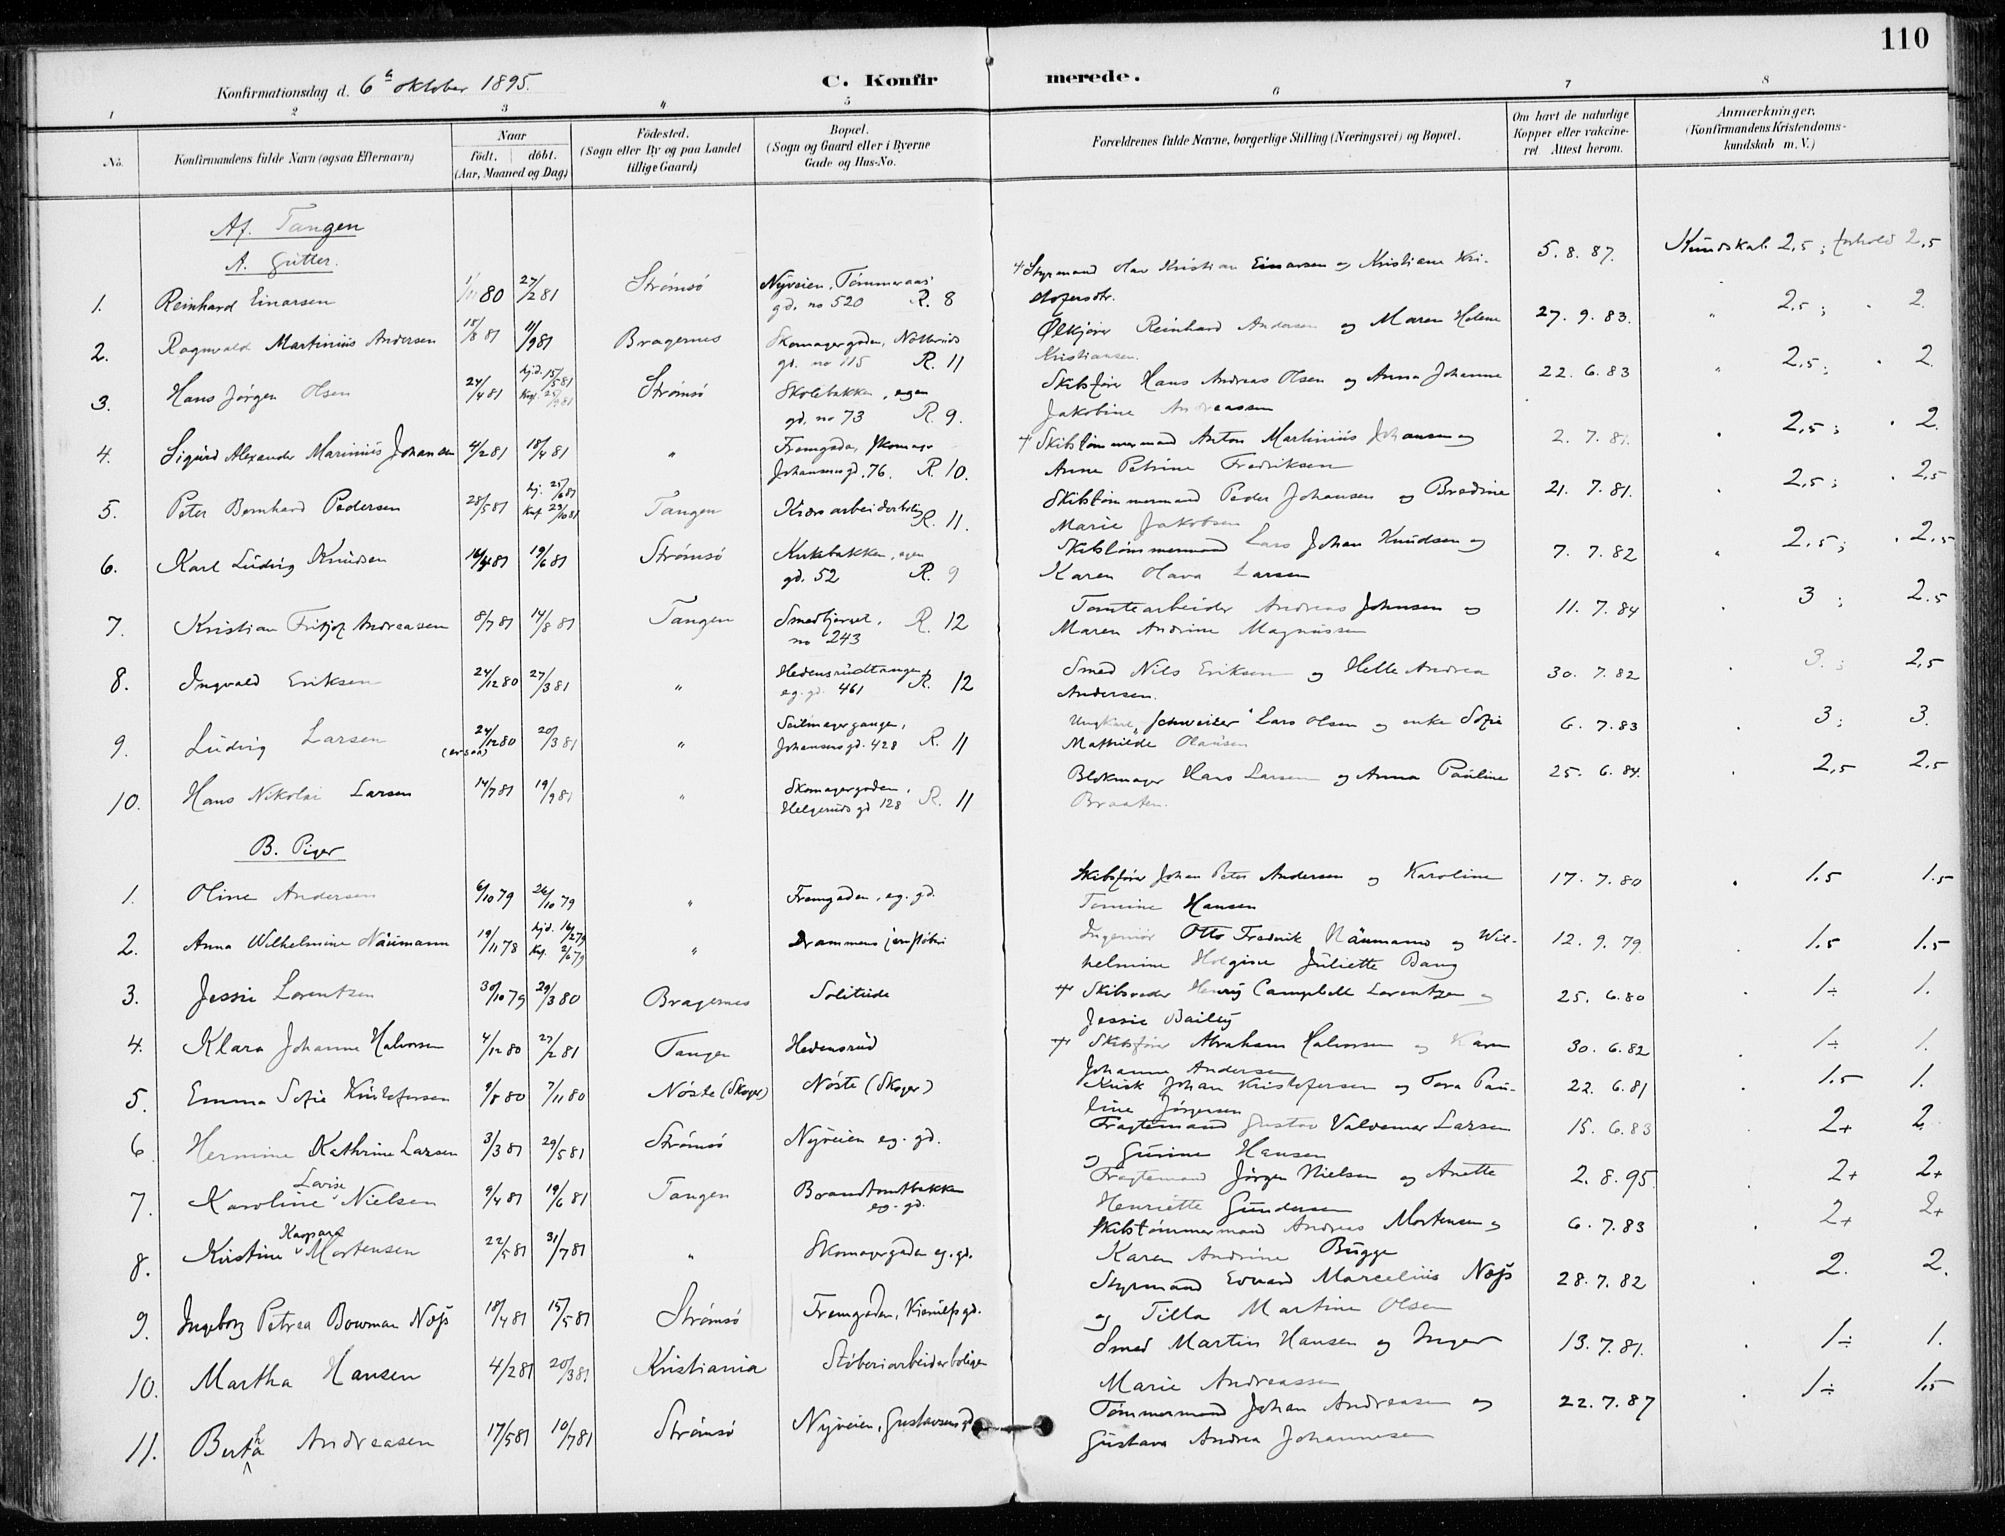 110
Konfirmationsdag d. 6te oktober 1895.
C. Konfirmerede.
1 2 3 4 5 6 7 8
No.
Konfirmandens fulde Navn (ogsaa Efternavn)
Naar
født. døbt.
(Aar, Maaned og Dag)
Fødested.
(Sogn eller By og paa Landet
tillige Gaard)
Bopæl.
(Sogn og Gaard eller i Byerne
Gade og Hus-No.
Forældrenes fulde Navne, borgerlige Stilling (Næringsvei) og Bopæl.
Om havt de naturlige
Kopper eller vakcine-
ret Attest herom.
Anmærkninger,
(Konfirmandens Kristendoms-
kundskab m. V.)
Af. Tangen
A. Gutter.
1. Reinhard Einarsen 80 27/2 81 Strømsø Nyveien, Tømmeraas' + Styrmand Olav Kristian Einarsen og Kristiane Kri- 5. 8. 87. Kundskab 2,5 ; forhold 2,5
gd. no 520 R. 8 stofersdtr.
2. Ragnvald Martinius Andersen 18/8 81 11/9 81 Bragernes Skomagergaden, Ølkjører Reinhard Andersen og Maren Helene 27. 9. 83. " 2,5 ; . 2.
gd. no 115 R. 11 Kristiansen.
3. Hans Jørgen Olsen 24/4 81 hjd. 15/5 81 Strømsø Skolebakken, egen Skibsfører Hans Andreas Olsen og Anna Johanne 22. 6. 83 " 2,5 ; . 2
gd. no 73 R 9. Jakobine Andreassen
4. Sigurd Alexander Marinius Johansen 4/2 81 18/4 81 " Fremgada, skomager + Skibstømmermand Anton Martinius Johansen og 2. 7. 81. . 2,5 ; . 2.
Johansens gd. 76. R. 10. Anne Petrine Fredriksen
5. Peter Bernhard Pedersen 28/5 81 hj. 25/6 81 Tangen R. 11. Skibstømmermand Peder Johansen og Bredine 21. 7. 81. . 2,5 ; . 2,5
Krk 29/10 81 Marie Jakobsen
6. Karl Ludvig Knudsen 16/4 81 19/6 81 Strømsø Kukbakken, egen Skibstømmermand Lars Johan Knudsen og 7. 7. 82 " 2,5 ; . 2,5
gd. 52 R. 9 Karen Olava Larsen
7. Kristian Fritjof Andreassen 8/7 81 14/8 81 Tangen Smedhjørnet, R. 12 Tomtearbeider Andreas Johnsen og 11. 7. 84 . 3 ; 2.5
no 243 Maren Andrine Magnussen
8. Ingvald Eriksen 24/12 80 27/3 81 " Hedensrudtangen Smed Nils Eriksen og Helle Andrea 30. 7. 82 . 3. ; 2,5
eg. gd. 461 R. 12 Andersen.
9. Ludvig Larsen 24/12 80 20/3 81 " Seilmagergangen, Ungkarl "Schweitzer" Lars Olsen og enke Sofie 6. 7. 83 . 3 ; 3.
Johansens gd. 428 R. 11 Mathilde Olausen
10. Hans Nikolai Larsen 14/7 81 19/9 81 " Skomagergaden, Blokmager Hans Larsen og Anna Pauline 25. 6. 84. . 2,5 2,5
Helgeruds gd 128 R. 11 Braaten.
B. Piger
1. Oline Andersen 6/10 79 26/10 79 " Fremgaden, eg. gd. Skibsfører Johan Peter Andersen og Karoline 17. 7. 80 . 1.5 1.5
Tomine Hansen
2. Anna Wilhelmine Näumann 19/11 78 hjd. 16/2 79 " Drammens jernstøberi Ingeniør Otto Fredrik Näumann og Wil- 12. 9. 79. 1.5 1.5
Krk. 2/6 79 helmine Holgine Juliette Bang
3. Jessie Lorentzen 30/10 79 29/3 80 Bragernes Solitude + Skibsreder Henry Campbell Lorentzen og 25. 6. 80 . 1÷ 1.
Jessie Bailey
4. Klara Johanne Halvorsen 4/12 80 27/2 81 Tangen Hedensrud + Skibsfører Abraham Halvorsen og Karen 30. 6. 82 . 1÷ 1.
Johanne Andersen
5. Emma Sofie Kristofersen 9/8 80 7/11 80 Nøste (Skoger) Nøste (Skoger) Kusk Johan Kristofersen og Tora Pau- 22. 6. 81 . 1.5 1.
line Jørgensen
6. Hermine Kathrine Larsen 3/3 81 29/5 81 Strømsø Nyveien eg. gd. Fragtemand Gustav Valdemar Larsen 15. 6. 83 . 2+ 2.
og Gunine Hansen
7. Karoline Lovise Nielsen 9/4 81 19/6 81 Tangen Brandtomtbakken Fragtemand Jørgen Nielsen og Anette 2. 8. 95. . 2+ 2+
eg. gd. Henriette Gundersen
8. Kirstine Kaspara Mortensen 22/5 81 31/7 81 " Skomagergaden eg. gd. Skibstømmermand Andreas Mortensen og 6. 7. 83 . 2+ 2+
Karen Andrine Bugge
9. Ingeborg Petrea Bowman Næss 18/4 81 15/5 81 Strømsø Fremgaden, Styrmand Edvard Marcelius Næss 28. 7. 82 . 2. 2.
og Tilla Martine Olsen
10. Martha Hansen 4/2 81 20/3 81 Kristiania Støberiarbeiderboligen Smed Martin Hansen og Inger 13. 7. 81. . 1÷ 1.
Marie Andreassen
11. Bertha Andreasen 17/5 81 10/7 81 Strømsø Nyveien, Gustavsens gd Tømmermand Johan Andreasen og 22. 7. 87 . 1÷ 1,5
Gustava Andrea Johannesen